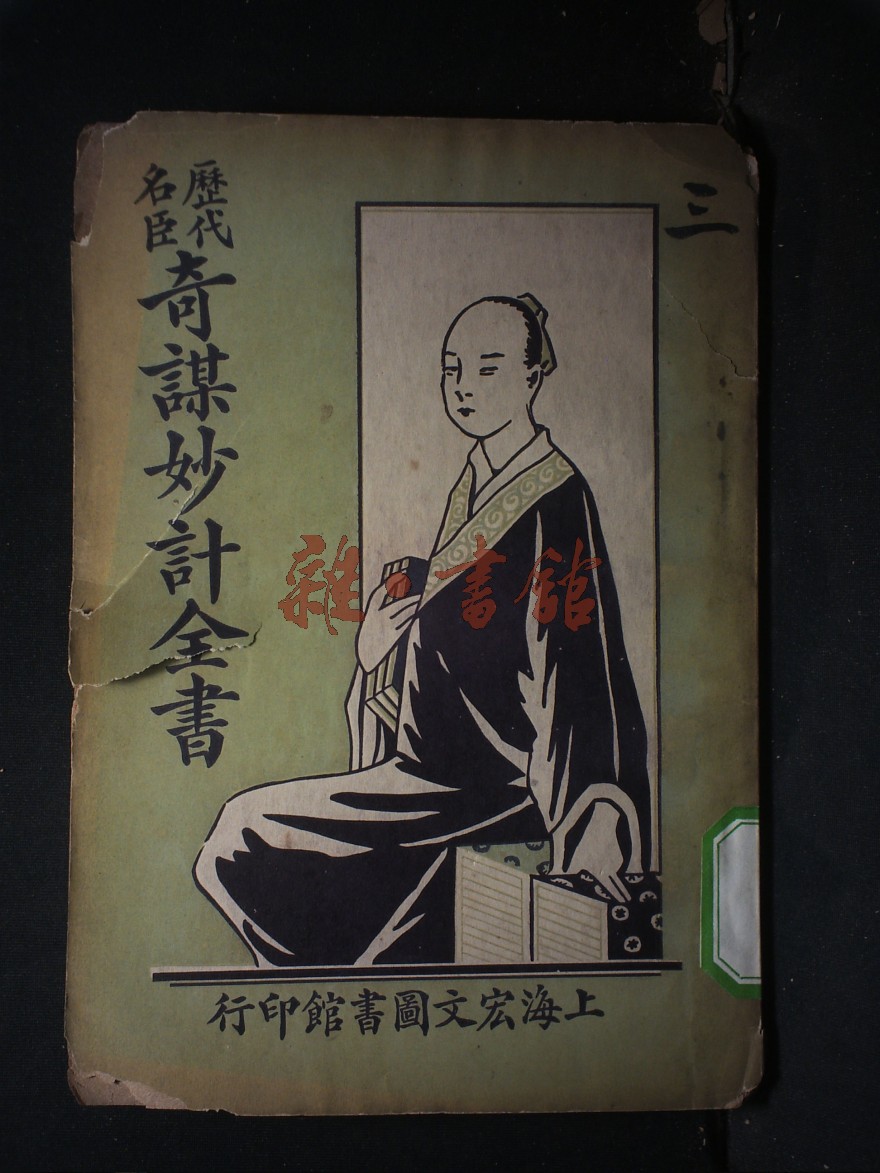 三
歷代
名臣
奇謀妙計全書
雜·書館
上海宏文圖書館印行